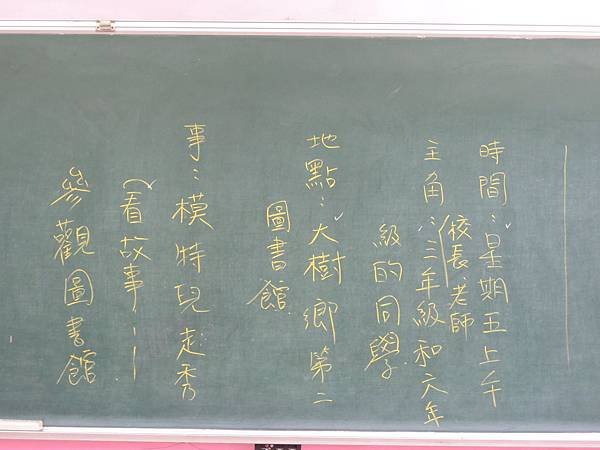 時間：星期五上午
校長、老師
主角：三年級和六年
級的同學
地點：大樹鄉第二
圖書館
事：模特兒走秀
（看故事……）
參觀圖書館